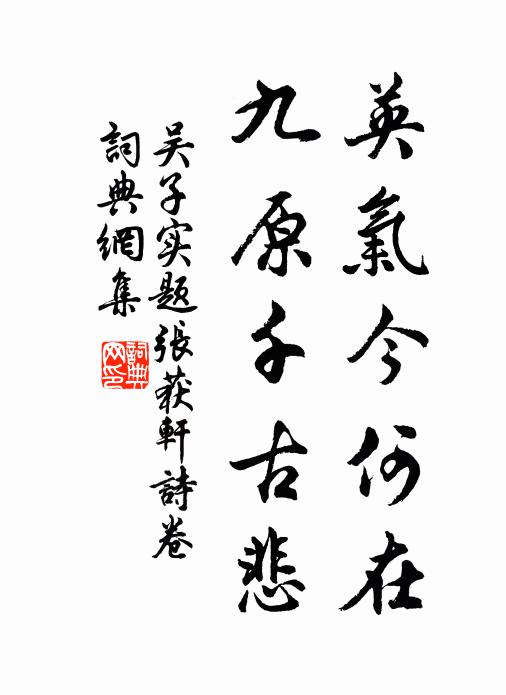 英氣今何在
九原千古悲
吴子实题張荻軒詩卷
詞典網集
詞典网印